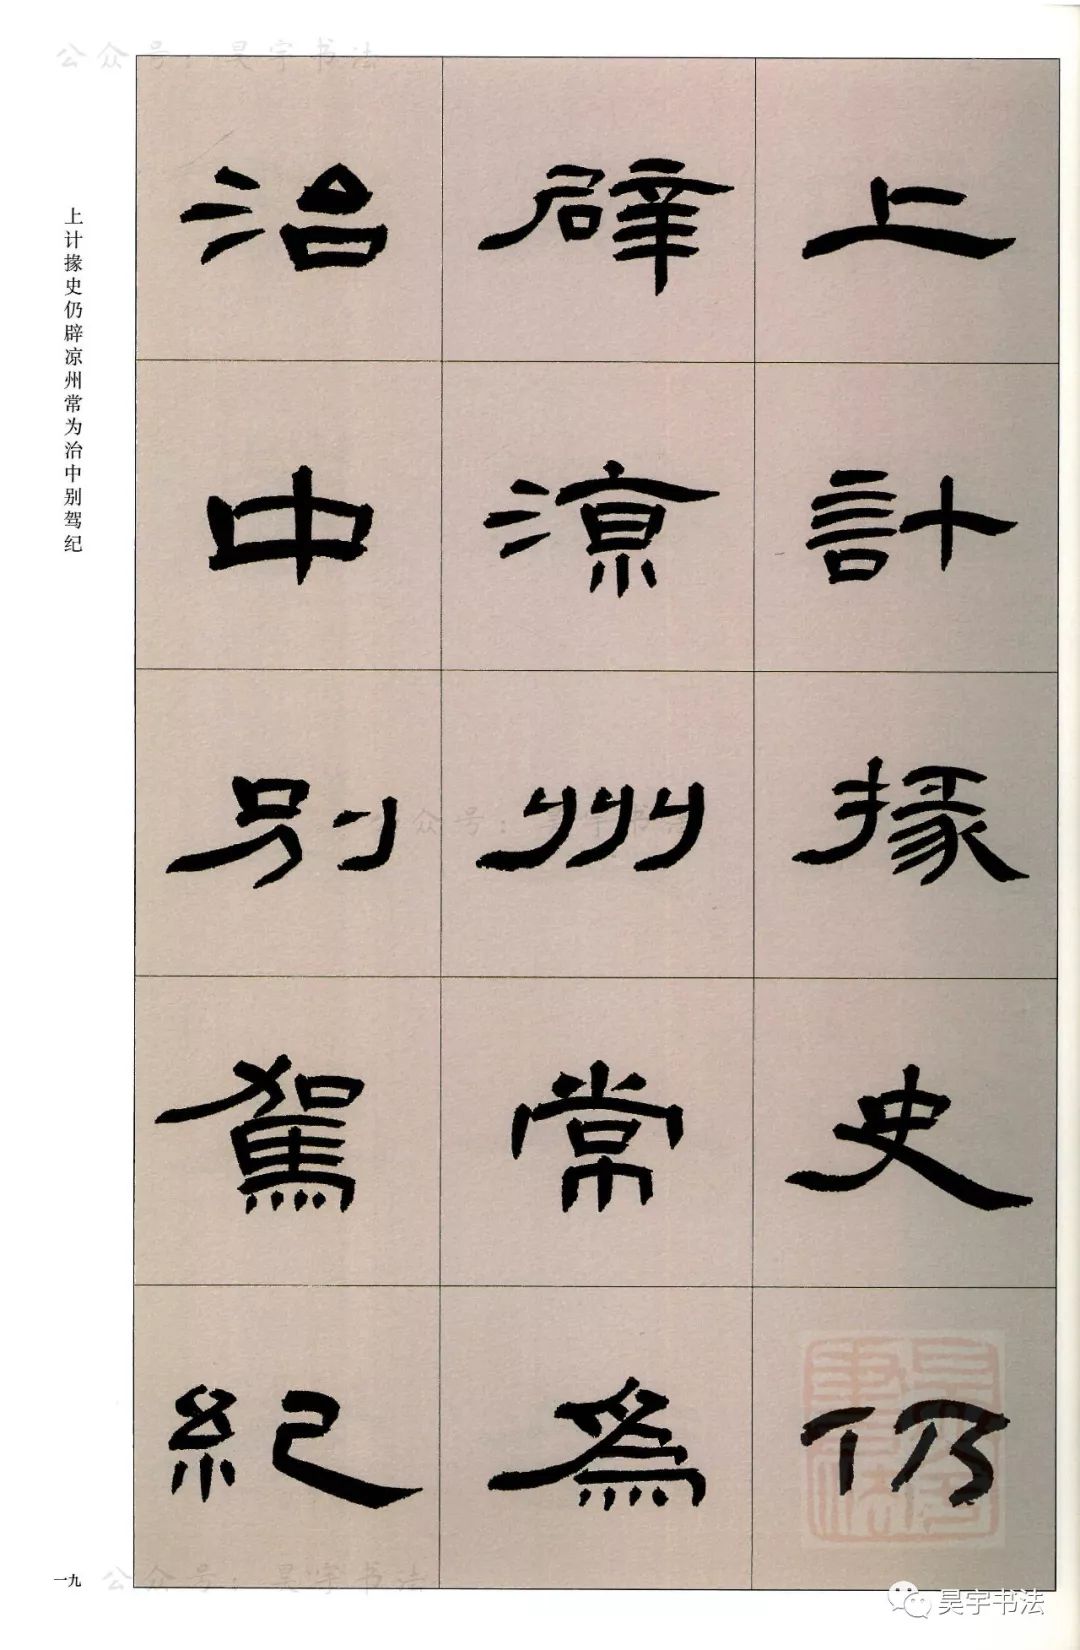 公众号：昊宇书法
上計掾史仍
辟涼州常為
治中別駕紀
上计掾史仍辟凉州常为治中别驾纪
公众号：昊宇书法
一九
公众号：昊宇书法
昊宇书法